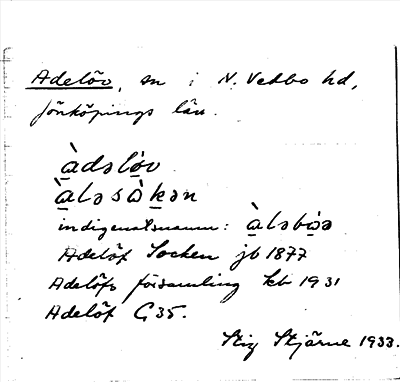 Adelöv, sn i N. Vedbo hd,
Jönköpings län.
àdəlöv
àləsåkən
indigenatsnamn: àləboə
Adelöf Socken jb 1877
Adelöfs församling kb 1931
Adelöf G35.
Stig Stjärne 1933.